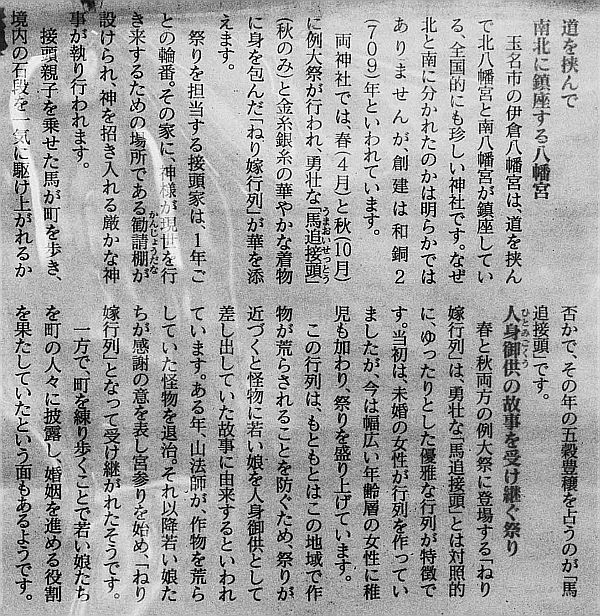 道を挟んで
南北に鎮座する八幡宮
玉名市の伊倉八幡宮は、道を挟ん
で北八幡宮と南八幡宮が鎮座してい
る、全国的にも珍しい神社です。なぜ
北と南に分かれたのかは明らかでは
ありませんが、創建は和銅2
(709)年といわれています。
両神社では、春(4月)と秋(10月)
に例大祭が行われ、勇壮な「馬追接頭」うまおいせっとう
(秋のみ)と金糸銀糸の華やかな着物
に身を包んだ「ねり嫁行列」が華を添
えます。
祭りを担当する接頭家は、1年ご
との輪番。その家に、神様が現世を行
き来するための場所である勧請棚がかんじょうだな
設けられ、神を招き入れる厳かな神
事が執り行われます。
接頭親子を乗せた馬が町を歩き、
境内の石段を一気に駆け上がれるか
否かで、その年の五穀豊穣を占うのが「馬
追接頭」です。
人身御供の故事を受け継ぐ祭りひとみごくう
春と秋両方の例大祭に登場する「ねり
嫁行列」は、勇壮な「馬追接頭」とは対照的
に、ゆったりとした優雅な行列が特徴で
す。当初は、未婚の女性が行列を作ってい
ましたが、今は幅広い年齢層の女性に稚
児も加わり、祭りを盛り上げています。
この行列は、もともとはこの地域で作
物が荒らされることを防ぐため、祭りが
近づくと怪物に若い娘を人身御供として
差し出していた故事に由来するといわれ
ています。ある年、山法師が、作物を荒ら
していた怪物を退治。それ以降若い娘た
ちが感謝の意を表し宮参りを始め、「ねり
嫁行列」となって受け継がれたそうです。
一方で、町を練り歩くことで若い娘たち
を町の人々に披露し、婚姻を進める役割
を果たしていたという面もあるようです。